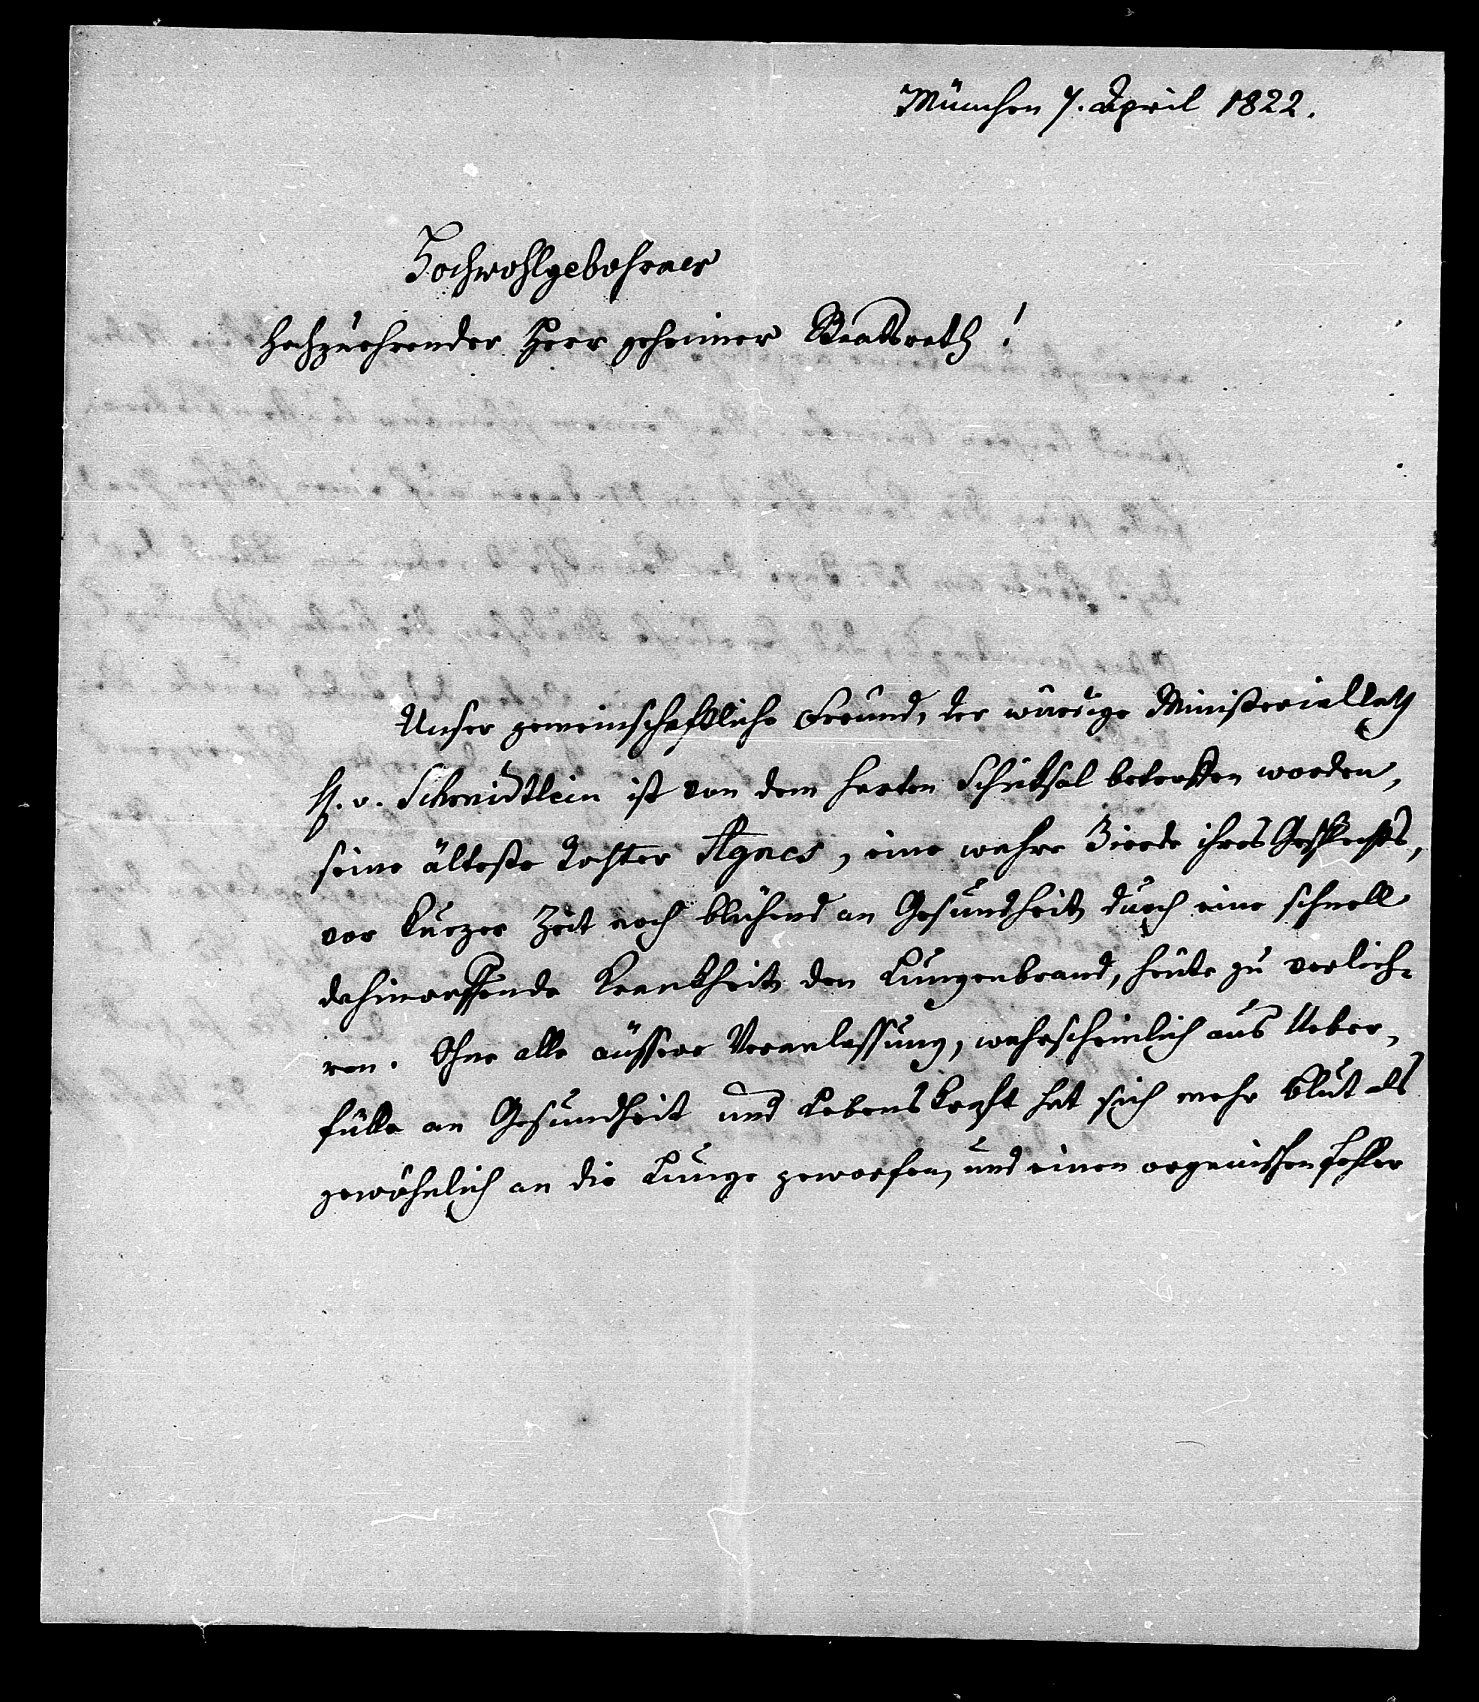 München 7. April 1822.
Hochwohlgebohrner
Hochzuehrender Herr geheimer Staatsrath!
Unser gemeinschaftliche Freund, der würdige Ministerialrath
H. v. Schmidtlein ist von dem harten Schiksal betroffen worden,
seine älteste Tochter Agnes, eine wahre Zierde ihres Geschlechts,
vor kurzer Zeit noch blühend an Gesundheit durch eine schnell
dahinraffende Krankheit den Lungenbrand, heute zu verlieh-
ren. Ohne alle äussere Veranlassung, wahrscheinlich aus Ueber-
fülle an Gesundheit und Lebenskraft hat sich mehr Blut als
gewöhnlich an die Lunge geworfen, und einen organischen Fehler